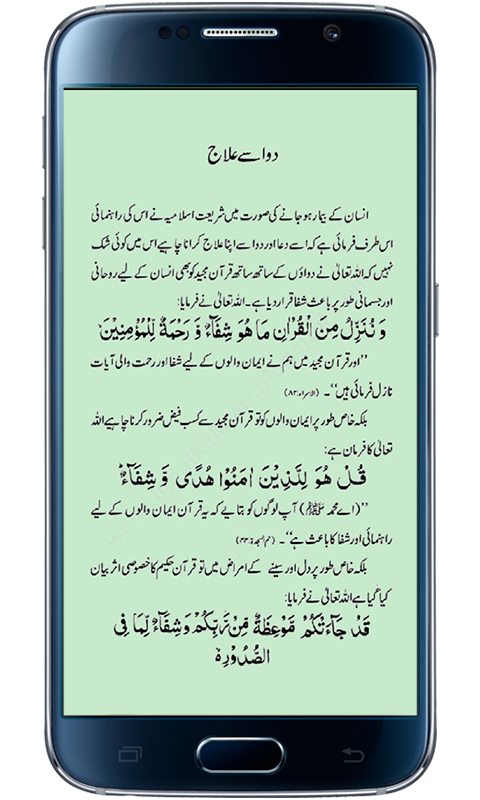 دوا سے علاج
انسان کے بیمار ہو جانے کی صورت میں شریعت اسلامیہ نے اس کی راہنمائی
اس طرف فرمائی ہے کہ اسے دعا اور دوا سے اپنا علاج کرانا چاہیے اس میں کوئی شک
نہیں کہ اللہ تعالیٰ نے دواؤں کے ساتھ ساتھ قرآن مجید کو بھی انسان کے لیے روحانی
اور جسمانی طور پر باعث شفا قرار دیا ہے۔ اللہ تعالیٰ نے فرمایا:
وَ نُنَزِّلُ مِنَ الْقُرْاٰنِ مَا هُوَ شِفَآءٌ وَّ رَحْمَةٌ لِّلْمُؤْمِنِيْنَ
’’اور قرآن مجید میں ہم نے ایمان والوں کے لیے شفا اور رحمت والی آیات
نازل فرمائی ہیں‘‘۔ (الاسراء:۸۲)
بلکہ خاص طور پر ایمان والوں کو تو قرآن مجید سے کسب فیض ضرور کرنا چاہیے اللہ
تعالیٰ کا فرمان ہے:
قُلْ هُوَ لِلَّذِيْنَ اٰمَنُوْا هُدًى وَّ شِفَآءٌ ؕ
’’(اے محمد ﷺ) آپ لوگوں کو بتایے کہ یہ قرآن ایمان والوں کے لیے
راہنمائی اور شفا کا باعث ہے‘‘۔ (حم السجدۃ:۴۴)
بلکہ خاص طور پر دل اور سینے کے امراض میں تو قرآن حکیم کا خصوصی اثر بیان
کیا گیا ہے اللہ تعالیٰ نے فرمایا:
قَدْ جَآءَتْكُمْ مَّوْعِظَةٌ مِّنْ رَّبِّكُمْ وَ شِفَآءٌ لِّمَا فِى
الصُّدُوْرِ ۙ